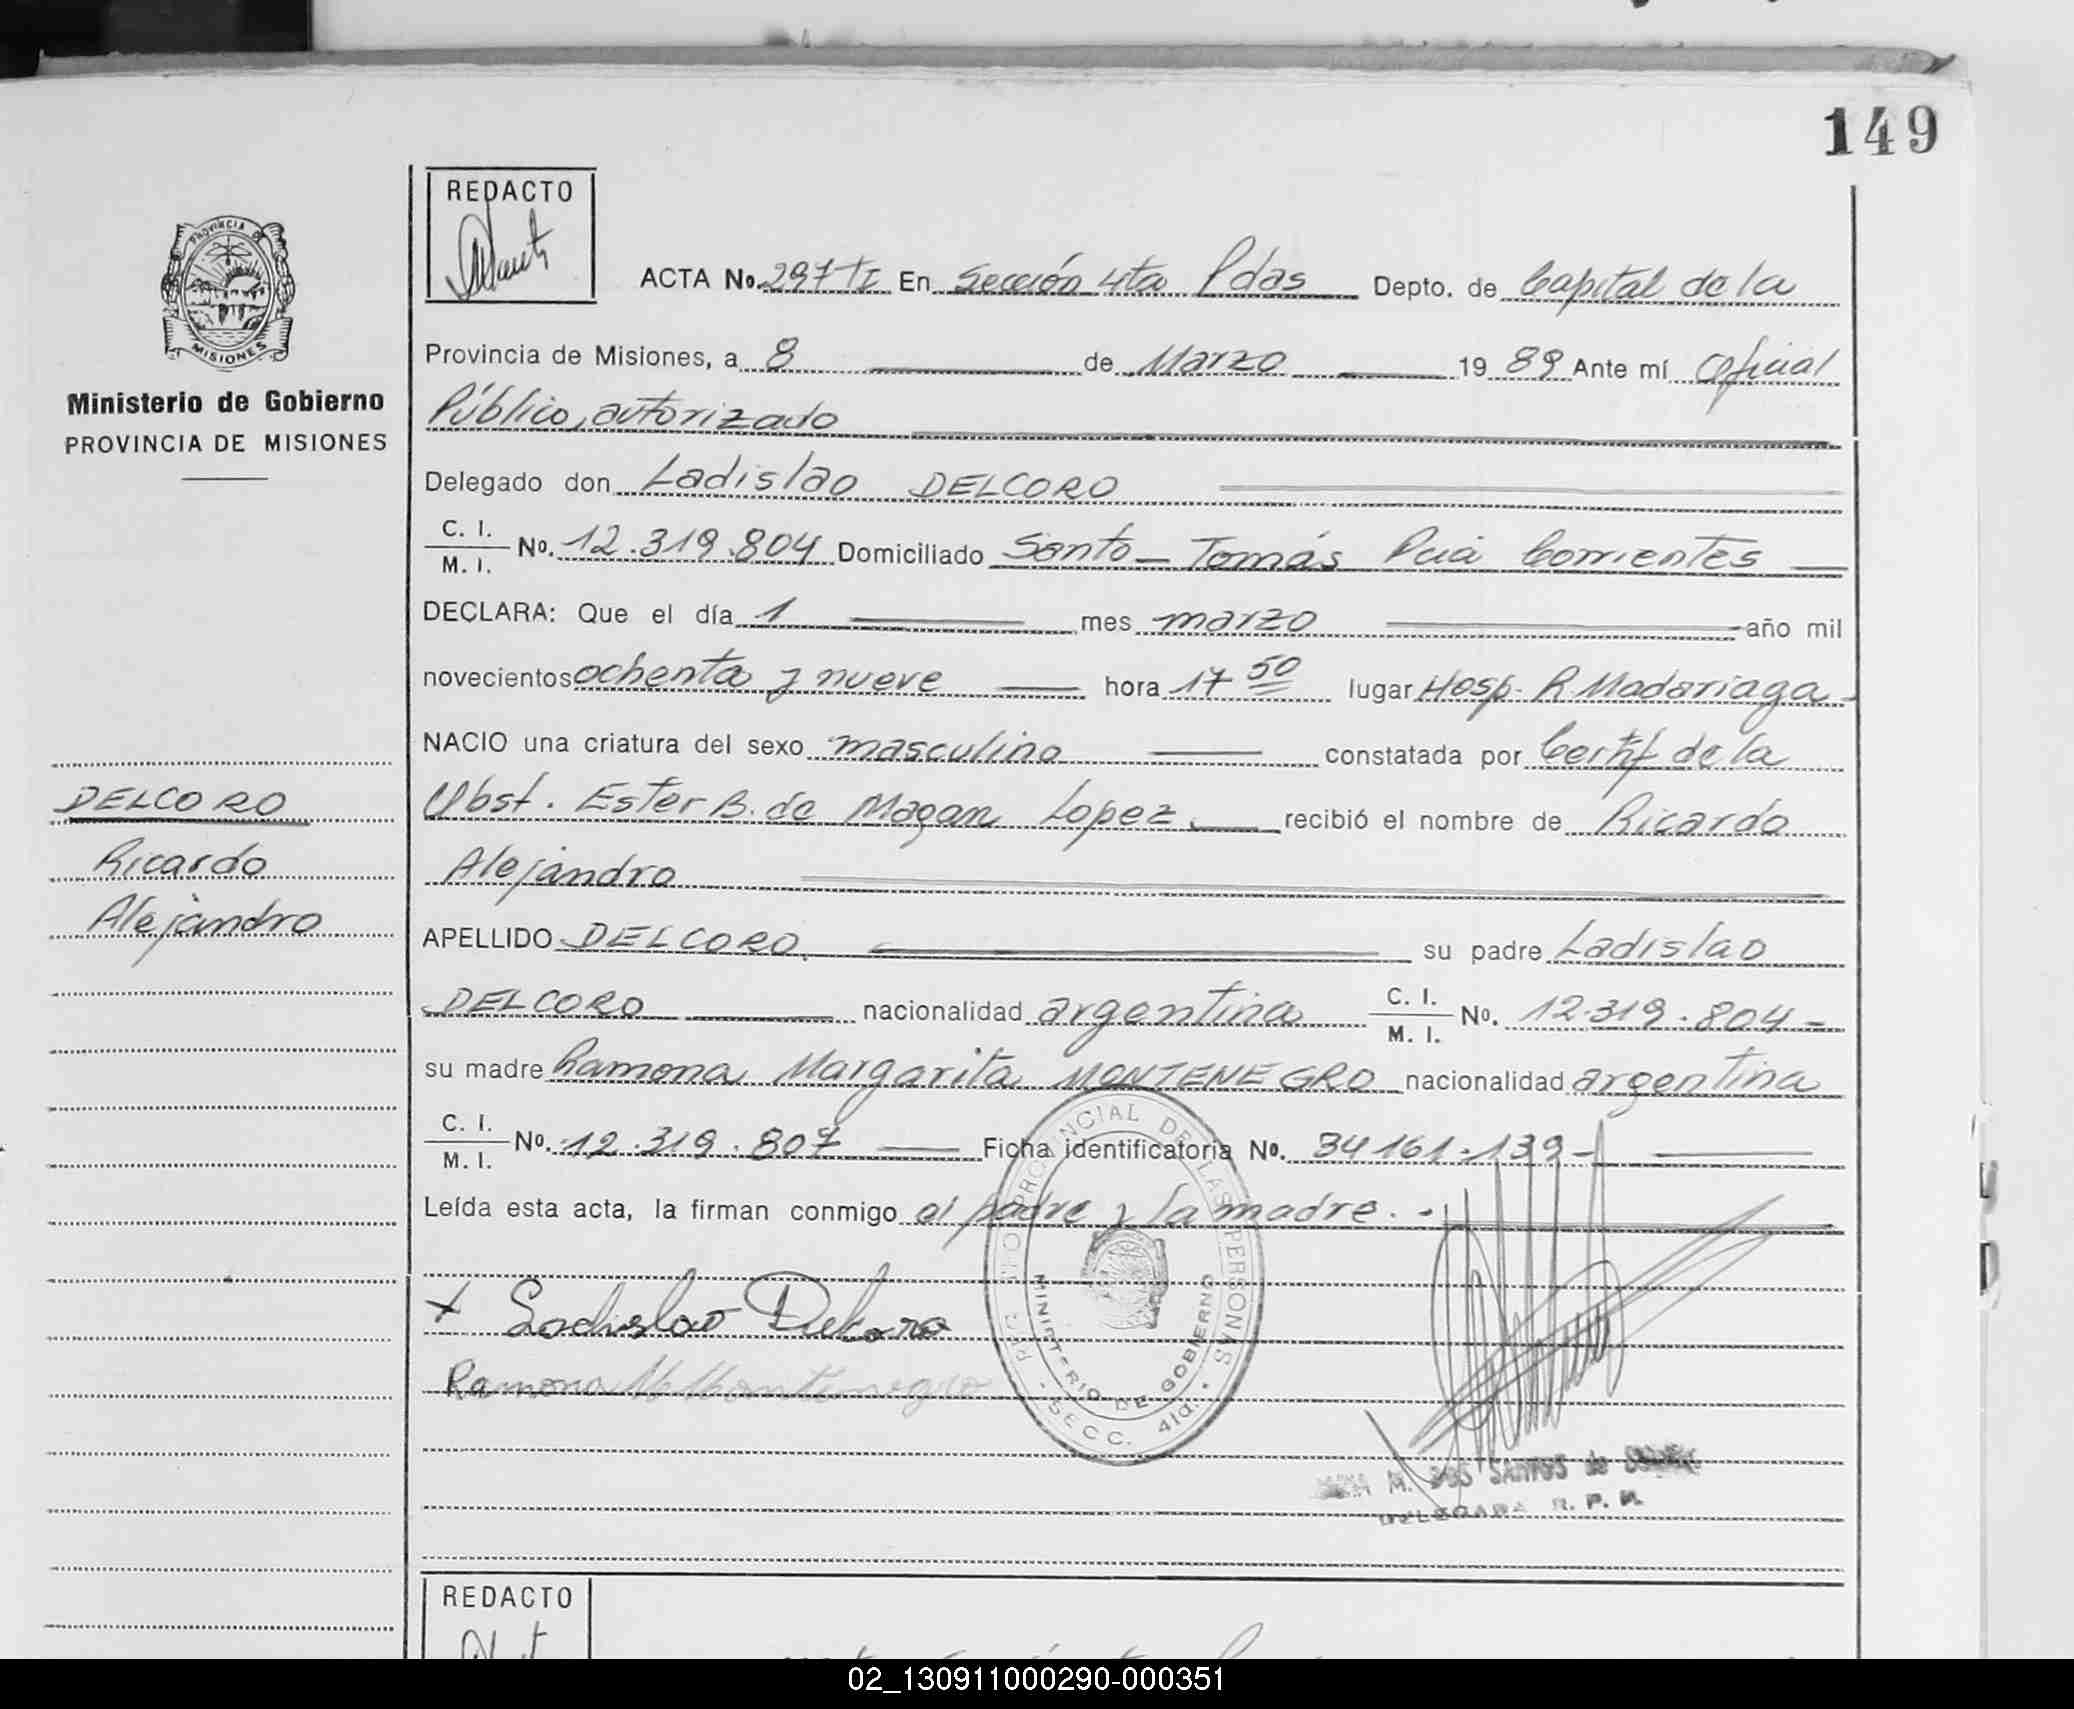 149
REDACTO
ACTA No. 297 TI En Sección 4ta Pdas Depto. de Capital de la
PROVINCIA DE
MISIONES
Provincia de Misiones, a 8 de Marzo 1989 Ante mí Oficial
Ministerio de Gobierno
PROVINCIA DE MISIONES
Público, autorizado
Delegado don Ladislao DELCORO
C. I.
M. I.
No. 12.319.804 Domiciliado Santo Tomás Pcia Corrientes
DECLARA: Que el día 1 mes marzo año mil
novecientos ochenta y nueve hora 17 50 lugar Hosp. R. Madariaga
NACIO una criatura del sexo masculino constatada por Certif de la
DELCORO
Obst. Ester B. de Magan Lopez recibió el nombre de Ricardo
Ricardo
Alejandro
Alejandro
APELLIDO DELCORO su padre Ladislao
DELCORO nacionalidad argentina C. I.
M. I. No. 12.319.804 -
su madre Ramona Margarita MONTENEGRO nacionalidad argentina
C. I.
M. I.
No. 12.319.807 Ficha identificatoria No. 34161.139 -
Leída esta acta, la firman conmigo el padre y la madre.-
+ Ladislao Delcoro
Ramona M Montenegro
PROVINCIAL DE LAS PERSONAS
MINISTERIO DE GOBIERNO
SECC. 4ta.
M. DOS SANTOS de
DELEGADA R. P. P.
REDACTO
02_130911000290-000351